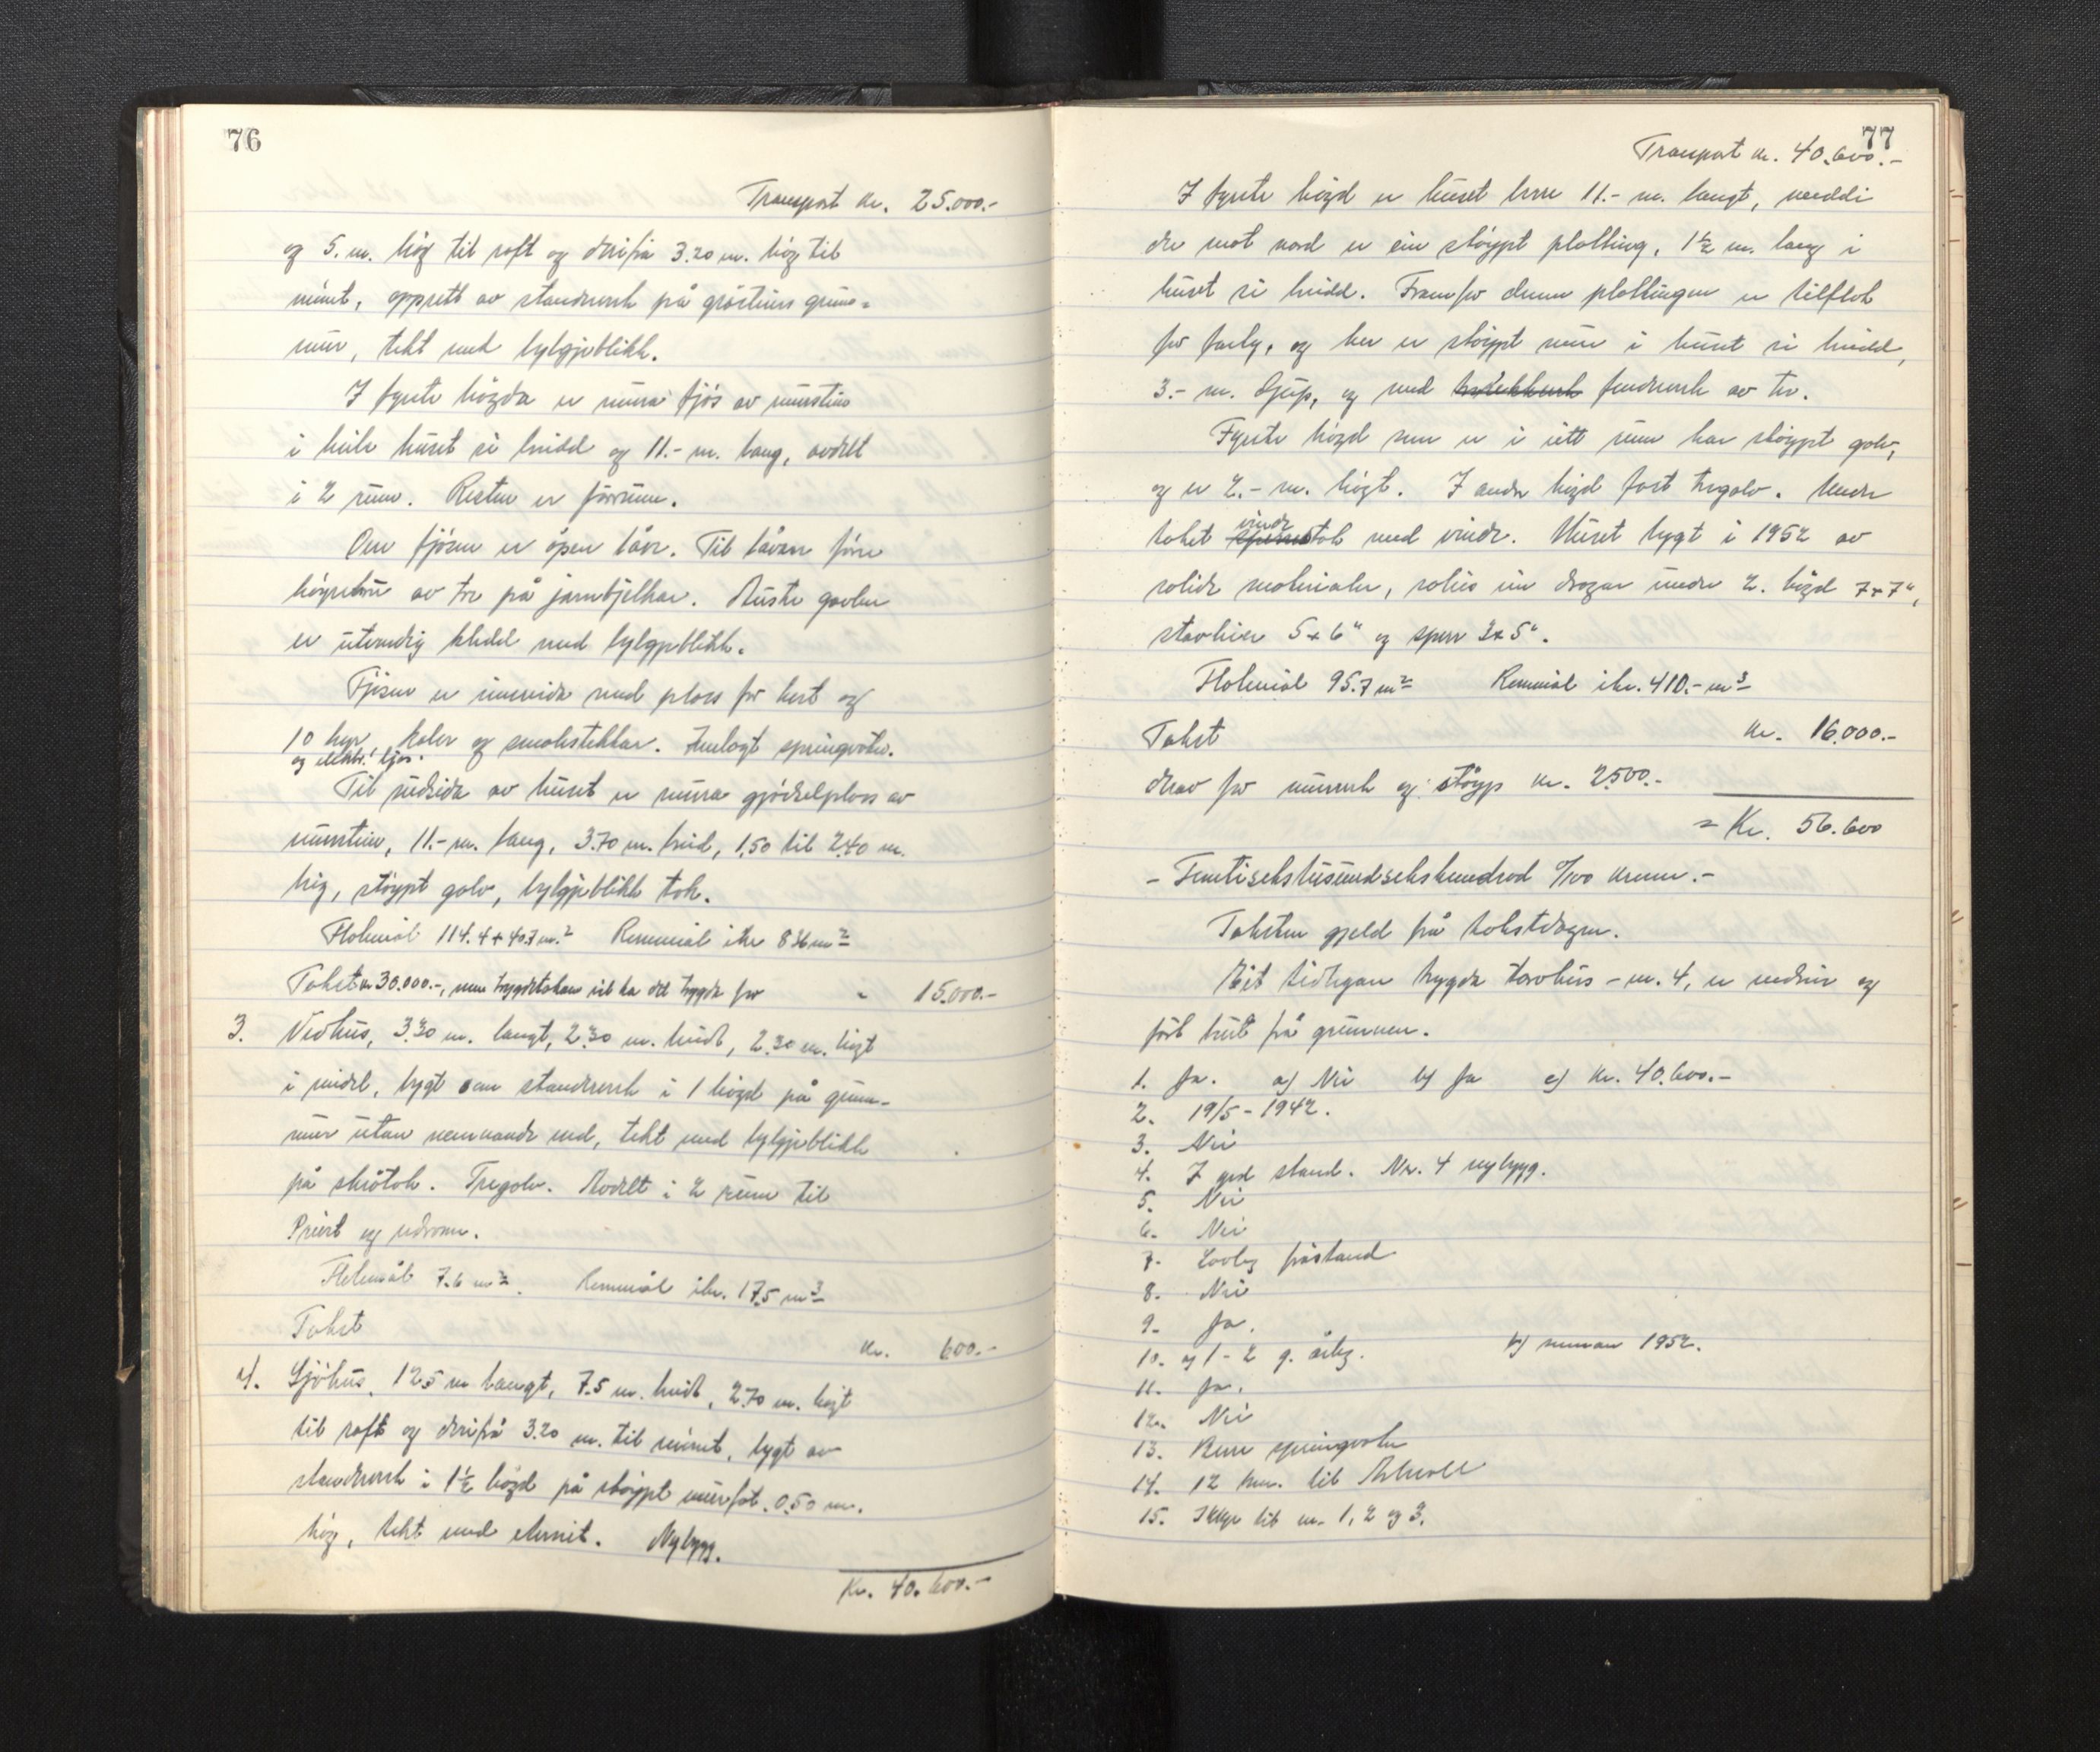 76
Transport kr. 25.000.-
og 5. m. høg til raft og derifrå 3.20 m. høg til
mønet, oppsett av standverk på gråsteins grunn=
mur, tekt med bylgjeblikk.
I fyrste høgda er mura fjøs av murstein
i heile huset si breidd og 11.- m. lang, avdelt
i 2 rum. Resten er forrum.
Over fjøsen er open låve. Til låven fører
køyrebru av tre på jarnbjelkar. Austre gavlen
er utvendig kledd med bylgjeblikk.
Fjøsen er innreidd med plass for hest og
10 kyr, kalvar og småstekklar. Innlagt springvatn.
og elektr. ljos.
Til nedsida av huset er mura gjødselplass av
murstein, 11.- m. lang, 3.70 m. breid, 1,50 til 2.40 m.
høg, støypt golv, bylgjeblikk tak.
Flatemål 114.4 + 40.7 m.² Rommål ikr 836 m²
Takst kr 30.000.-, men trygdetakaren vil ha det trygda for " 15.000.-
3. Vedhus, 3.30 m. langt, 2.30 m. breidt, 2.30 m. høgt
i midel, bygt som standverk i 1 høgd på grunn-
mur utan nemnande verd, tekt med bylgjeblikk
på skråtak. Tregolv. Avdelt i 2 rum til
Privet og vedrom.
Flatemål 7.6 m². Rommål ikr. 17.5 m³
Takst kr. 600.-
4. Sjøhus, 12.5 m langt, 7.5 m. breidt, 2.70 m. høgt
til raft og derifrå 3.20 m. til mønet, bygt av
standverk i 1½ høgd på støypt murfot. 0.50 m.
høg, tekt med eternit. Nybygg.
Kr. 40.600.-
77
Transport kr. 40.600.-
I fyrste høgd er huset berre 11.- m. langt, verddi
der mot nord er ein støypt platting, 1½ m. lang i
huset si breidd. Framfor denne plattingen er tilflot
for farty, og her er støypt mur i huset si breidd,
3.- m. djup, og med fendverk av tre.
Fyrste høgd som er i eitt rum har støypt golv,
og er 2.- m. høgt. I andre høgd fast tregolv. Under
vindr
taket tak med vindr. Huset bygt i 1952 av
solide materialer, solies im dragar under 2. høgd 7x7",
stavlier 5x6" og sperr 3x5".
Flatemål 95.7 m² Rommål ikr. 410.- m³
Takst kr. 16.000.-
derav for murverk og støyp kr. 2500.-
= Kr. 56.600
- Femtisekstusundsekshundrad 0/100 kroner.-
Taksten gjeld frå takstdagen.
Eit tidlegare trygda torvhus - nr. 4, er nedrive og
ført burt frå grunnen.
1. Ja. a) Nei b) Ja c) Kr. 40.600.-
2. 19/5 - 1942.
3. Nei
4. I god stand. Nr. 4 nybygg.
5. Nei
6. Nei
7. Lovleg fråstand
8. Nei
9. Ja.
10. a) 1 - 2 g. årleg. b) sumaren 1952.
11. Ja.
12. Nei
13. Berre springvatn
14. 12 km. til Askvoll
15. Ikkje til nr. 1, 2 og 3.